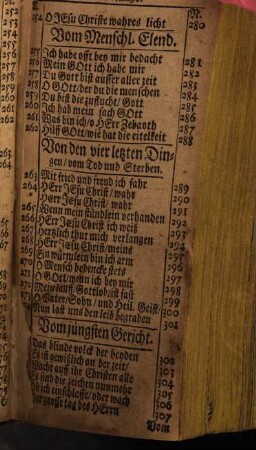 N.
254 O JEsu Christe wahres licht 280
Vom Menschl. Elend.
255 Ich habe offt bey mir bedacht 281
256 Mein GOtt ich habe mir 282
257 Du Gott bist ausser aller zeit 283
258 O GOtt/der du die menschen 284
259 Du bist die zuflucht/Gott 285
260 Ich hab mein sach GOtt 286
261 Was bin ich/o HErr Zebaoth 287
262 Hilff GOtt/wie hat die eitelkeit 288
Von den vier letzten Din-
gen/vom Tod und Sterben.
263 Mit fried und freud ich fahr 289
264 HErr JEsu Christ/wahr 290
HErr JEsu Christ/wahr 291
Wenn mein stündlein verhanden 292
HErr JEsu Christ ich weiß 293
Hertzlich thut mich verlangen 294
HErr Jesu Christ/meins 295
Ein würmlein bin ich arm 296
O Mensch bedencke stets 297
O GOtt/wenn ich bey mir 298
Mein lauff/Gottlob/ist fast 299
O Vater/Sohn/und Heil. Geist/ 300
Nun last uns den leib begraben 301
Vom jüngsten Gericht.
Das blinde volck der heyden 302
Es ist gewißlich an der zeit/ 303
Wacht auff ihr Christen alle 304
Es sind die zeichen nunmehr 305
Ob ich einschlaffe/oder wach 306
Der grosse tag des HErrn 307
Vom